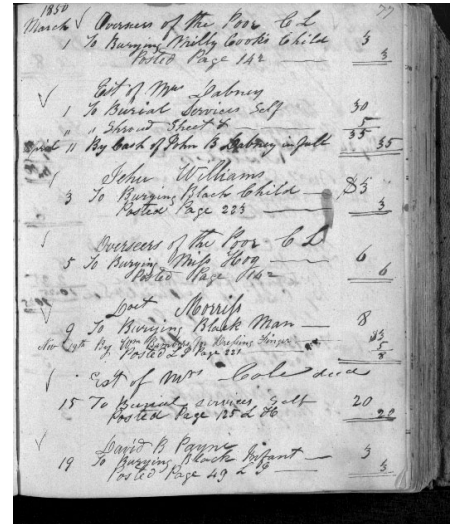 1850 77
March √ Overseers of the Poor C L
1 To Burying Milly Cook's Child 3
Posted Page 142 3
√ Est of Mrs Dabney
1 To Burial Services Self 30
" " Shroud Sheet & 5
35
" By Cash of John B Dabney in full 35
√ John Williams
3 To Burying Black Child $3
Posted Page 223 3
√ Overseers of the Poor C L
5 To Burying Miss Hog 6
Posted Page 142 6
√ Morriss
9 To Burying Black Man 8
Nov 19th By
Posted L Page 221 8
√ Est of Mrs Cole decd
15 To Burial services Self 20
Posted Page 125 L H 20
√ David B Payne
19 To Burying Black Infant 3
Posted Page 49 L 3